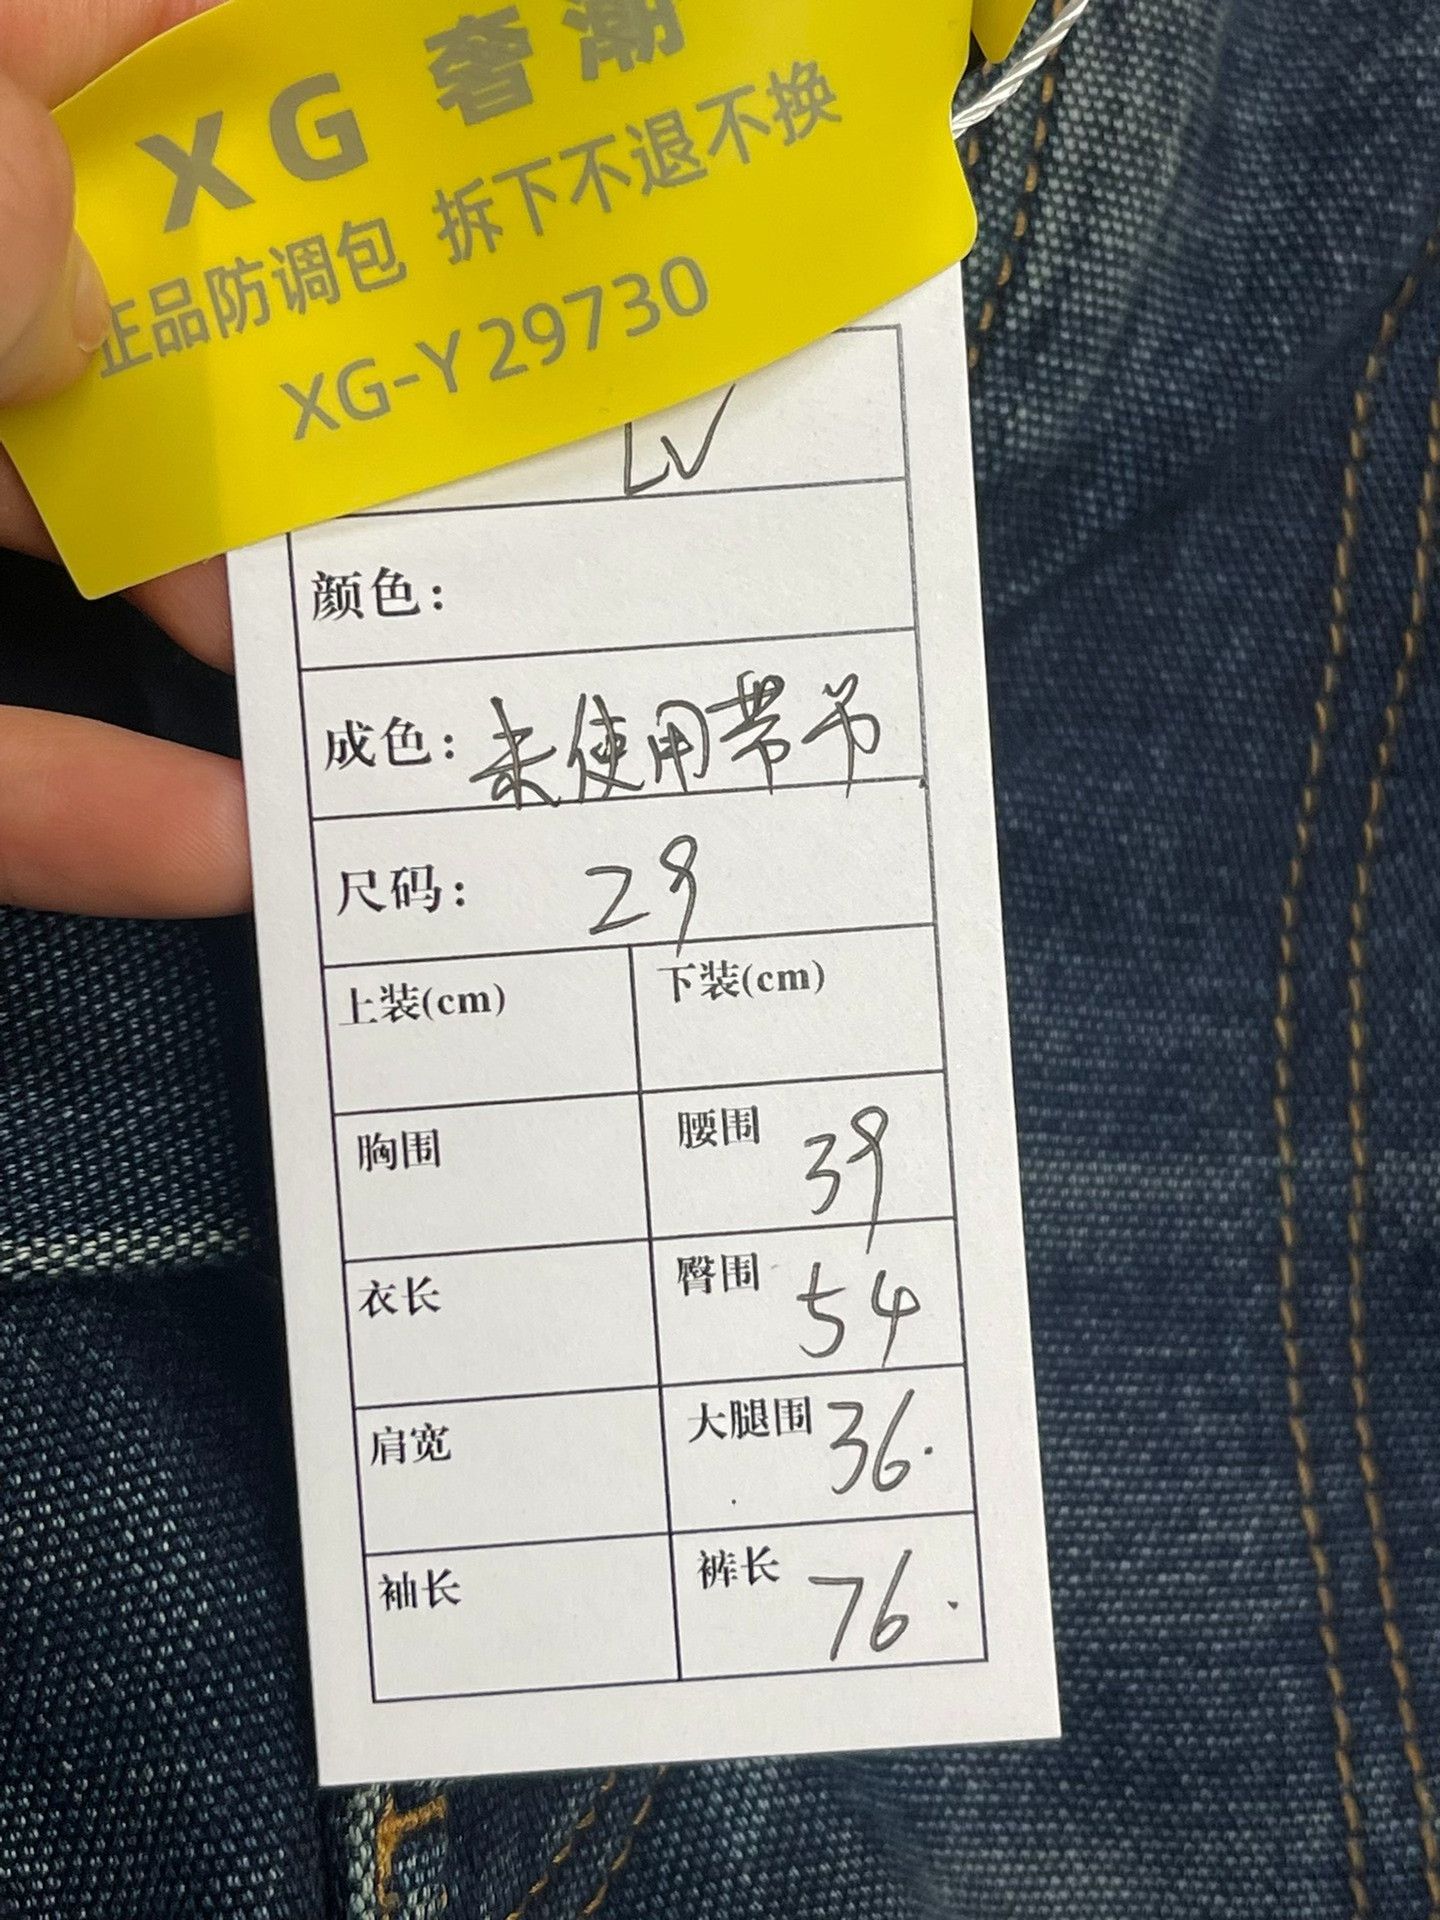 XG 奢潮
正品防调包 拆下不退不换
XG-Y29730
LV
颜色：
成色：未使用带书
尺码： 29
上装(cm) 下装(cm)
胸围 腰围 39
衣长 臀围 54
肩宽 大腿围 36.
袖长 裤长 76.